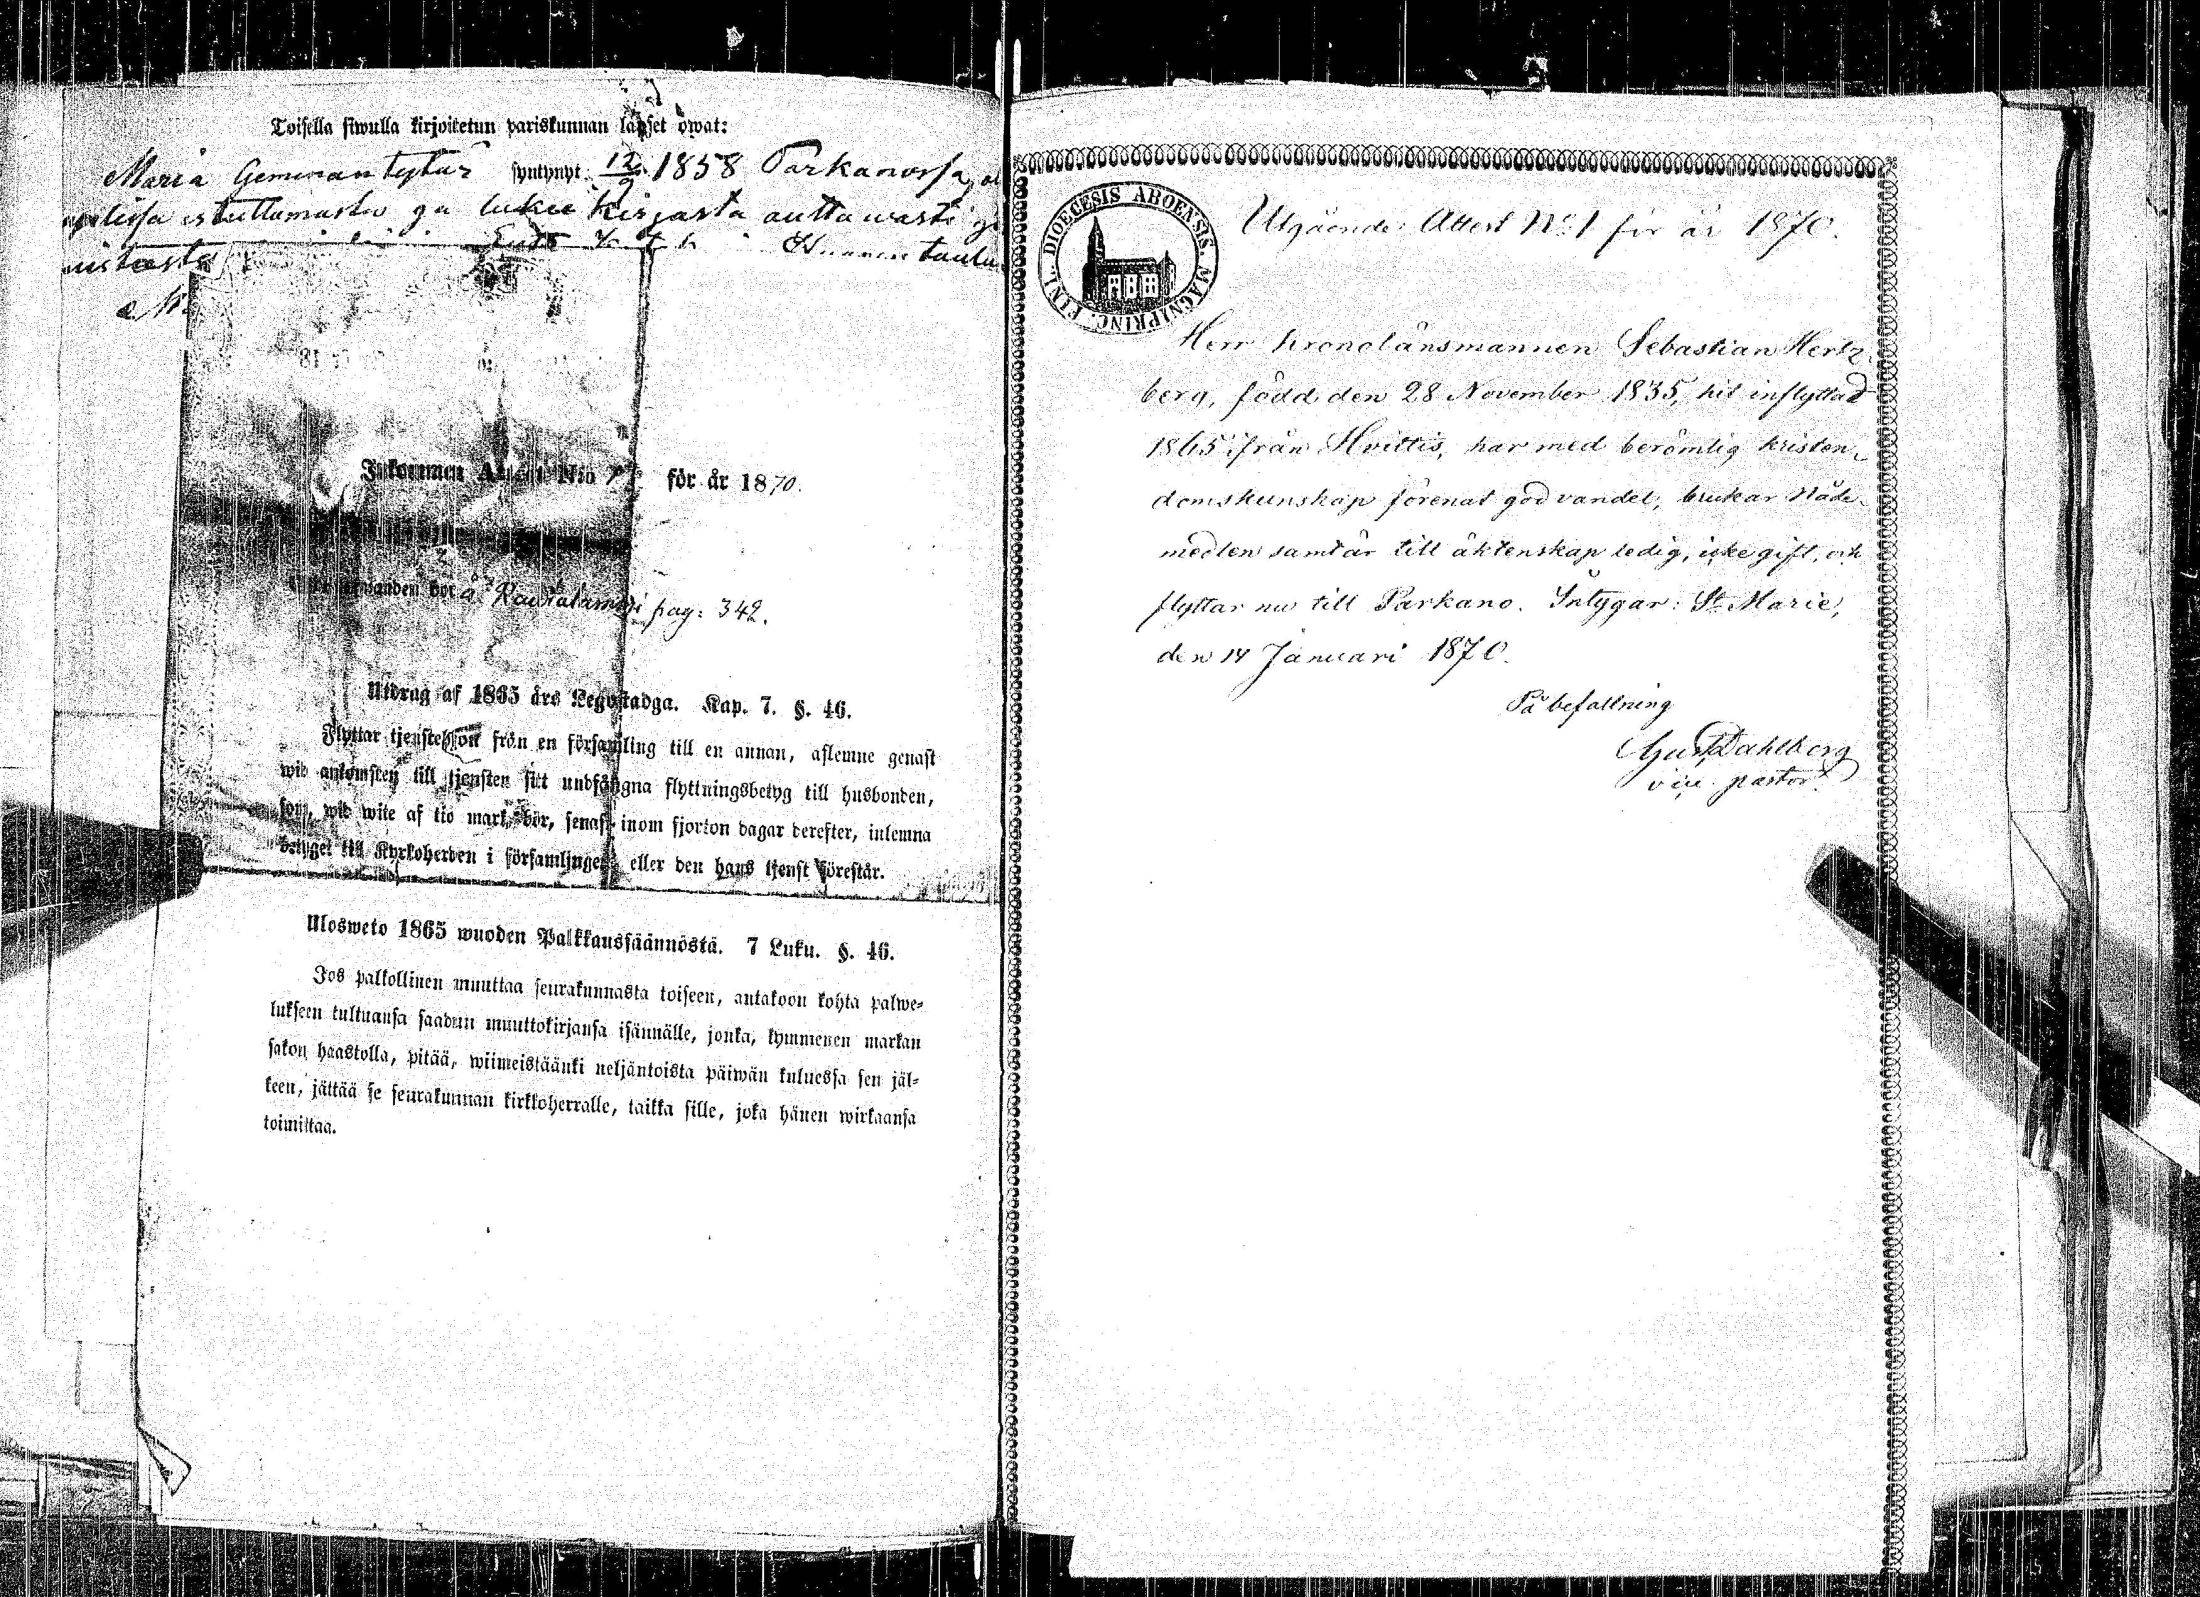 Toisella siwulla kirjoitetun pariskunnan lapset owat:
Maria syntynyt 12/9 1858 Parkanossa
ja lukee kirjasta auttawasti
Inkommen Attest N:o 7 för år 1870.
bor å pag: 342.
Utdrag af 1865 års Legostadga. Kap. 7. §. 46.
Flyttar tjenstehjon från en församling till en annan, aflemne genast
wid ankomsten till tjensten sitt undfångna flyttningsbetyg till husbonden,
som, wid wite af tio mark, bör, senast inom fjorton dagar derefter, inlemna
betyget till Kyrkoherden i församlingen eller den hans tjenst förestår.
Ulosweto 1865 wuoden Palkkaussäännöstä. 7 Luku. §. 46.
Jos palkollinen muuttaa seurakunnasta toiseen, antakoon kohta palwe-
lukseen tultuansa saadun muuttokirjansa isännälle, jonka, kymmenen markan
sakon haastolla, pitää, wiimeistäänki neljäntoista päiwän kuluessa sen jäl-
keen, jättää se seurakunnan kirkkoherralle, taikka sille, joka hänen wirkaansa
toimittaa.
DIOECESIS ABOENSIS. MAGNI PRINC. FINL.
Utgående Attest No 1 för år 1870.
Herr Kronolänsmannen Sebastian Hertz
berg, född den 28 November 1835, hit inflyttad
1865 ifrån Hvittis, har med berömlig kristen-
domskunskap förenat god vandel, brukar Nåde-
medlen samt är till äktenskap ledig, icke gift, och
flyttar nu till Parkano. Intygar: St Marie,
den 14 Januari 1870.
På befallning
Gust Dahlberg
vice pastor.